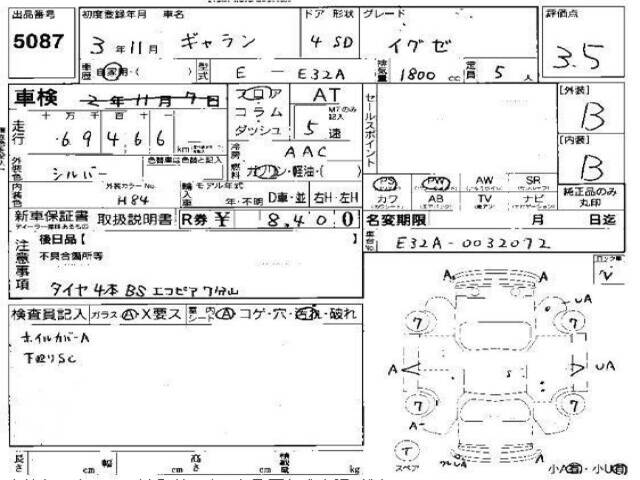 出品番号 初度登録年月 車名 ドア 形状 グレード 評価点
5087 3年11月 ギャラン 4 SD イグゼ 3.5
車歴 自家用・( ) 型式 E - E32A 排気量 1800cc 定員 5人
車検 2年11月7日 フロア AT セールスポイント [外装]
走行 十 万 千 百 十 一 コラム MTのみ記入 B
69466 km ダッシュ 5速 [内装]
外装色 シルバー 色替車は色替と記入 冷房 AAC B
燃料 ガソリン・軽油・( )
内装色 外装カラーNo. H84 輸入車 モデル年式 年・不明 D車・並 右H・左H
PS PW AW SR 純正品のみ丸印
カワ AB TV ナビ
新車保証書 取扱説明書 R券 ¥ 8,400 名変期限 月 日迄
ディーラー捺印あるもの
車台No. E32A-0032072
注意事項 後日品【 】
不具合箇所等
タイヤ4本 BS エコピア 7分山
検査員記入 ガラス A X要ス 室内シート A コゲ・穴・汚れ・破れ
ホイルカバーA
下廻りSC
長さ cm 幅 cm 高さ cm 積載量 kg
A A
A UA
7 7
A S UA
7 7
A UA
T
スペア